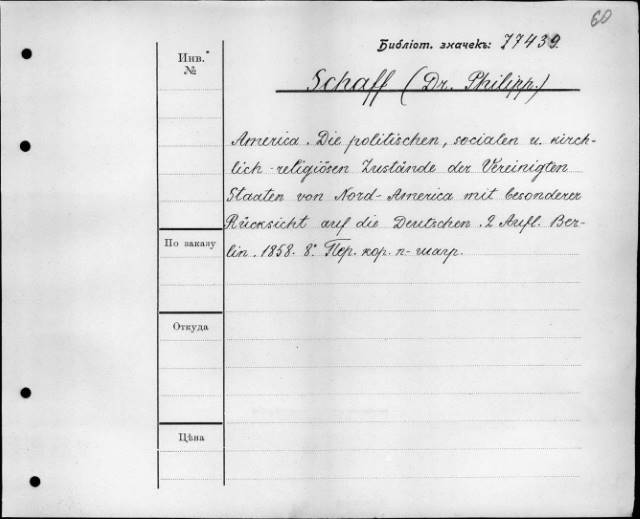 60
Библіот. значекъ: 77439
Инв. №
Schaff (Dr. Philipp.)
America. Die politischen, socialen u. kirch-
lich-religiösen Zustände der Vereinigten
Staaten von Nord-America mit besonderer
Rücksicht auf die Deutschen. 2 Aufl. Ber-
lin. 1858. 8° Пер. кор. п-шагр.
По заказу
Откуда
Цѣна